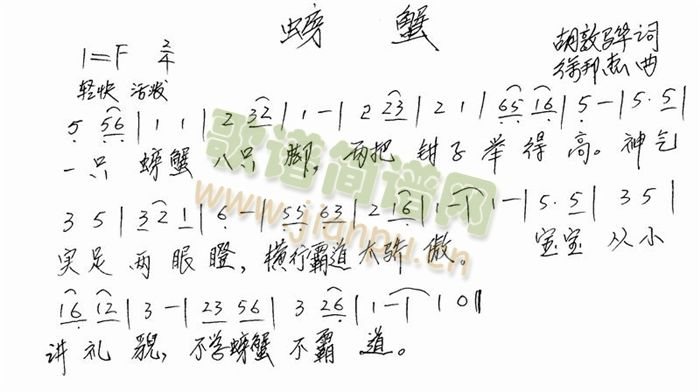 螃 蟹
1=F 2/4
胡敦骅词
徐邦杰曲
轻快 活泼
5 56 | 1 1 | 2 32 | 1 - | 2 23 | 2 1 | 65 16 | 5 - | 5. 5 |
一只 螃蟹 八只 脚, 两把 钳子 举 得 高。神气
3 5 | 3 2 1 | 6 - | 55 63 | 2 16 | 1 - | 1 - | 5. 5 | 3 5 |
实足 两 眼 瞪, 横行霸道太骄 傲。 宝宝 从小
16 12 | 3 - | 23 56 | 3 26 | 1 - | 1 0 ||
讲 礼 貌, 不学螃蟹 不霸 道。
歌谱简谱网
www.jianpu.cn